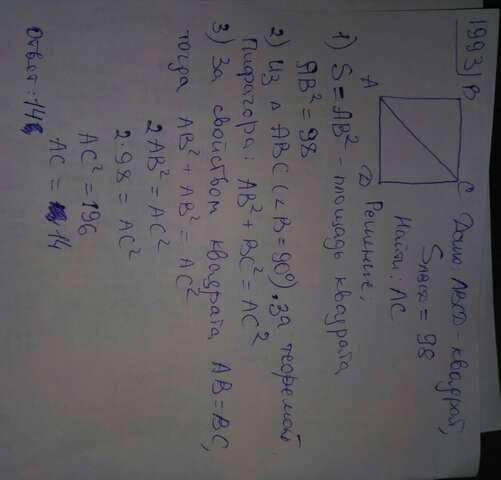 1993)
B
C
A
D
Дано: ABCD - квадрат,
SABCD = 98
Найти: AC
Решение:
1) S = AB² - площадь квадрата
AB² = 98
2) Из △ ABC (∠B = 90°), за теоремой
Пифагора: AB² + BC² = AC²
3) За свойством квадрата AB = BC,
тогда AB² + AB² = AC²
2AB² = AC²
2·98 = AC²
AC² = 196
AC = 14
Ответ: 14